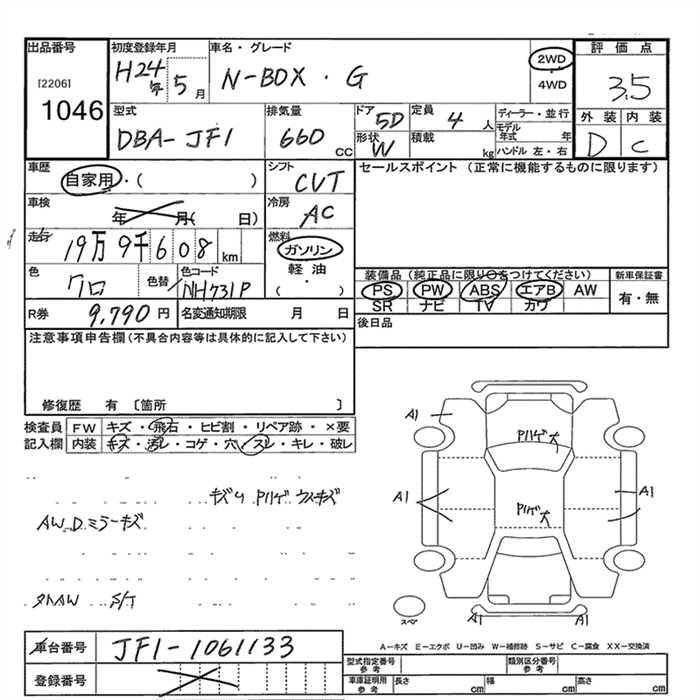 出品番号
[2206]
1046
初度登録年月
H24年5月
車名・グレード
N-BOX・G
2WD
・
4WD
評価点
3.5
外装 内装
D C
型式
DBA-JF1
排気量
660 CC
ドア
5D
定員
4人
形状
W
積載
kg
ディーラー・並行
モデル
年式 年
ハンドル 左・右
車歴
自家用・( )
シフト
CVT
セールスポイント (正常に機能するものに限ります)
車検
年 月( 日)
冷房
AC
走行
19万9千608km
燃料
ガソリン
・
軽油
・
( )
色
クロ
色替
色コード
NH731P
装備品 (純正品に限り○をつけてください)
新車保証書
PS PW ABS エアB AW
SR ナビ TV カワ
有・無
R券
9,790円
名変通知期限 月 日
後日品
注意事項申告欄 (不具合内容等は具体的に記入して下さい)
修復歴 有 〔箇所 〕
検査員
記入欄
FW キズ・飛石・ヒビ割・リペア跡・×要
内装 キズ・汚レ・コゲ・穴・スレ・キレ・破レ
AW D.ミラーキズ
A1
Pハゲ大
A1
A1
Pハゲ大
スペア
A1
A1
A-キズ E-エクボ U-凹み W-補修跡 S-サビ C-腐食 XX-交換済
車台番号
JF1-1061133
登録番号
型式指定番号
参考
類別区分番号
参考
車庫証明用
参考
長さ cm
幅 cm
高さ cm